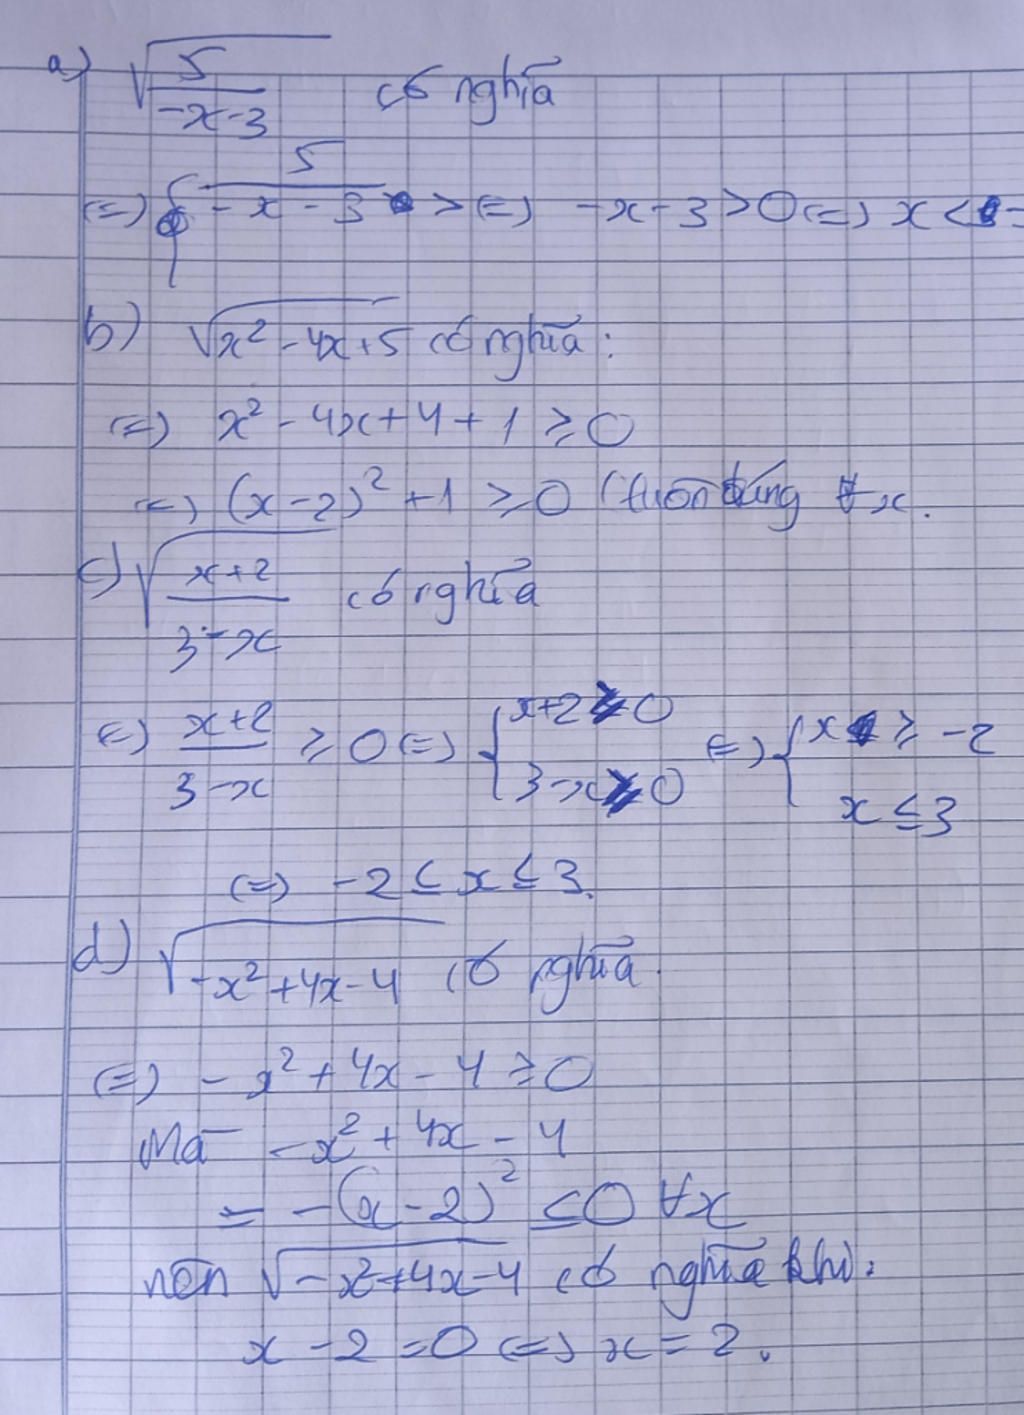 a) √(5/(-x-3)) có nghĩa
<=> { 5/(-x-3) > <=> -x-3 > 0 <=> x <
b) √(x²-4x+5) có nghĩa:
<=> x²-4x+4+1 ≥ 0
<=> (x-2)²+1 ≥ 0 (luôn đúng ∀x.
c) √((x+2)/(3-x)) có nghĩa
<=> (x+2)/(3-x) ≥ 0 <=> { x+2 ≥ 0; 3-x ≥ 0 <=> { x ≥ -2; x ≤ 3
<=> -2 ≤ x ≤ 3.
d) √(-x²+4x-4) có nghĩa.
<=> -x²+4x-4 ≥ 0
Mà -x²+4x-4
= -(x-2)² ≤ 0 ∀x
nên √(-x²+4x-4) có nghĩa khi:
x-2=0 <=> x=2.